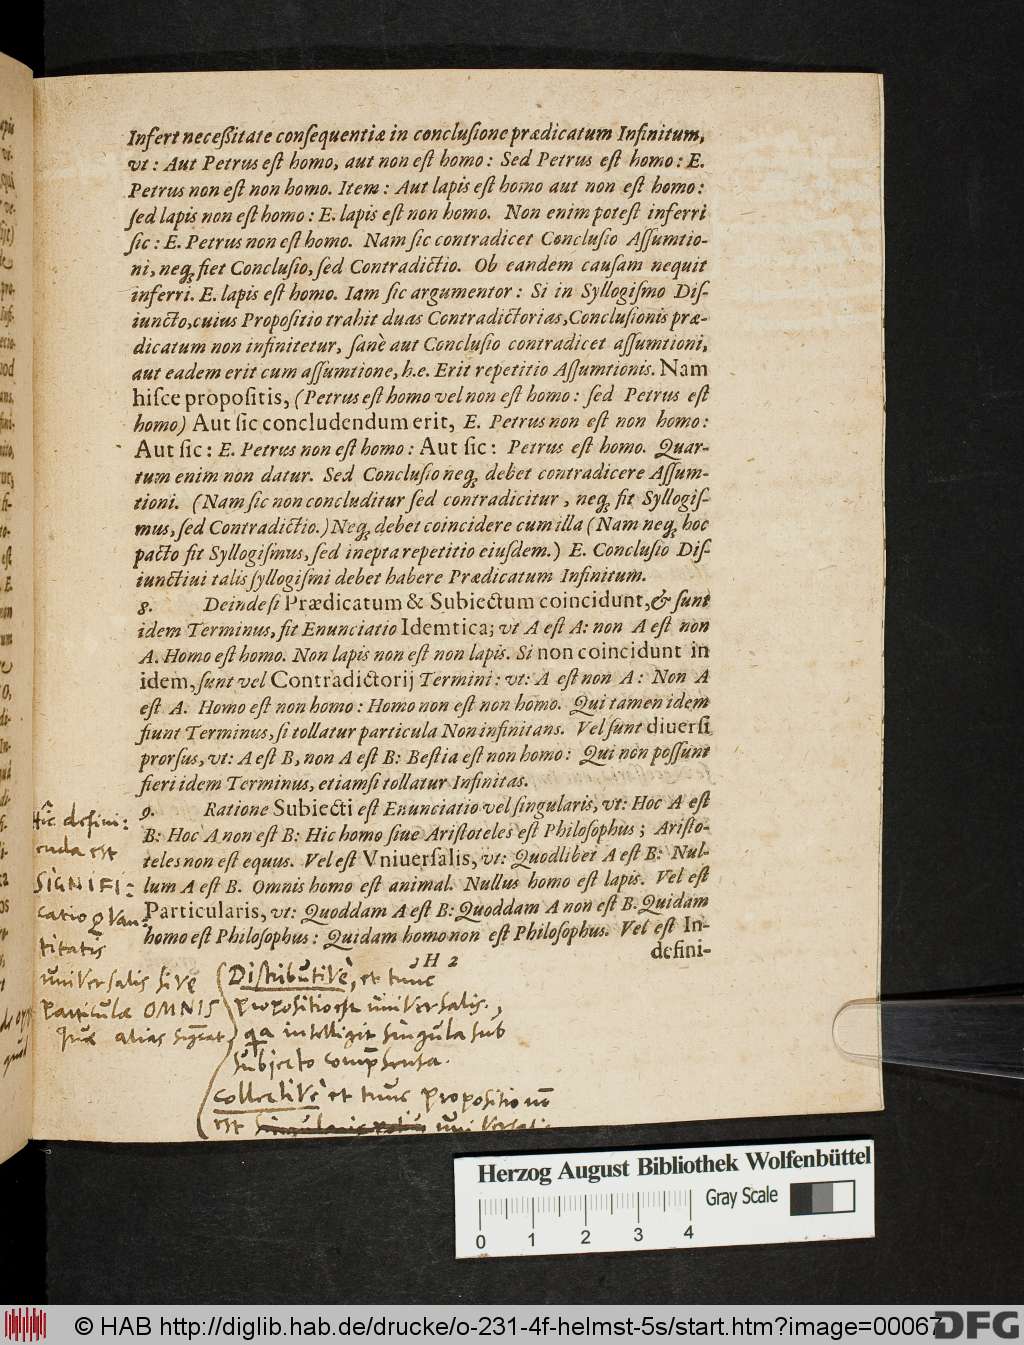 Infert neceßitate conſequentiæ in concluſione prædicatum Infinitum,
vt: Aut Petrus eſt homo, aut non eſt homo: Sed Petrus eſt homo: E.
Petrus non eſt non homo. Item: Aut lapis eſt homo aut non eſt homo:
ſed lapis non eſt homo: E. lapis eſt non homo. Non enim poteſt inferri
ſic: E. Petrus non eſt homo. Nam ſic contradicet Concluſio Aſſumtio-
ni, neq; fiet Concluſio, ſed Contradictio. Ob eandem cauſam nequit
inferri. E. lapis eſt homo. Iam ſic argumentor: Si in Syllogiſmo Diſ-
iuncto, cuius Propoſitio trahit duas Contradictorias, Concluſionis præ-
dicatum non infinitetur, ſanè aut Concluſio contradicet aſſumtioni,
aut eadem erit cum aſſumtione, h.e. Erit repetitio Aſſumtionis. Nam
hiſce propoſitis, (Petrus eſt homo vel non eſt homo: ſed Petrus eſt
homo) Aut ſic concludendum erit, E. Petrus non eſt non homo:
Aut ſic: E. Petrus non eſt homo: Aut ſic: Petrus eſt homo. Quar-
tum enim non datur. Sed Concluſio neq; debet contradicere Aſſum-
tioni. (Nam ſic non concluditur ſed contradicitur, neq; fit Syllogiſ-
mus, ſed Contradictio.) Neq; debet coincidere cum illa (Nam neq; hoc
pacto fit Syllogiſmus, ſed inepta repetitio eiuſdem.) E. Concluſio Diſ-
iunctiui talis ſyllogiſmi debet habere Prædicatum Infinitum.
8. Deinde ſi Prædicatum & Subiectum coincidunt, & ſunt
idem Terminus, fit Enunciatio Idemtica; vt A eſt A: non A eſt non
A. Homo eſt homo. Non lapis non eſt non lapis. Si non coincidunt in
idem, ſunt vel Contradictorij Termini: vt: A eſt non A: Non A
eſt A. Homo eſt non homo: Homo non eſt non homo. Qui tamen idem
fiunt Terminus, ſi tollatur particula Non infinitans. Vel ſunt diuerſi
prorſus, vt: A eſt B, non A eſt B: Beſtia eſt non homo: Qui non poſſunt
fieri idem Terminus, etiamſi tollatur Infinitas.
9. Ratione Subiecti eſt Enunciatio vel ſingularis, vt: Hoc A eſt
B: Hoc A non eſt B: Hic homo ſiue Ariſtoteles eſt Philoſophus; Ariſto-
teles non eſt equus. Vel eſt Vniuerſalis, vt: Quodlibet A eſt B: Nul-
lum A eſt B. Omnis homo eſt animal. Nullus homo eſt lapis. Vel eſt
Particularis, vt: Quoddam A eſt B: Quoddam A non eſt B. Quidam
homo eſt Philoſophus: Quidam homo non eſt Philoſophus. Vel eſt In-
H 2
defini-
Hîc defini:
enda est
SIGNIFI:
catio Quan-
titatis
universalis sive
particulæ OMNIS
quæ alias
Distributivè, et tunc
propositio est universalis,
qa intelligit singula sub
subjecto comprehensa.
collectivè et tunc propositio
est universalis
Herzog August Bibliothek Wolfenbüttel
Gray Scale
0 1 2 3 4
© HAB http://diglib.hab.de/drucke/o-231-4f-helmst-5s/start.htm?image=00067
DFG